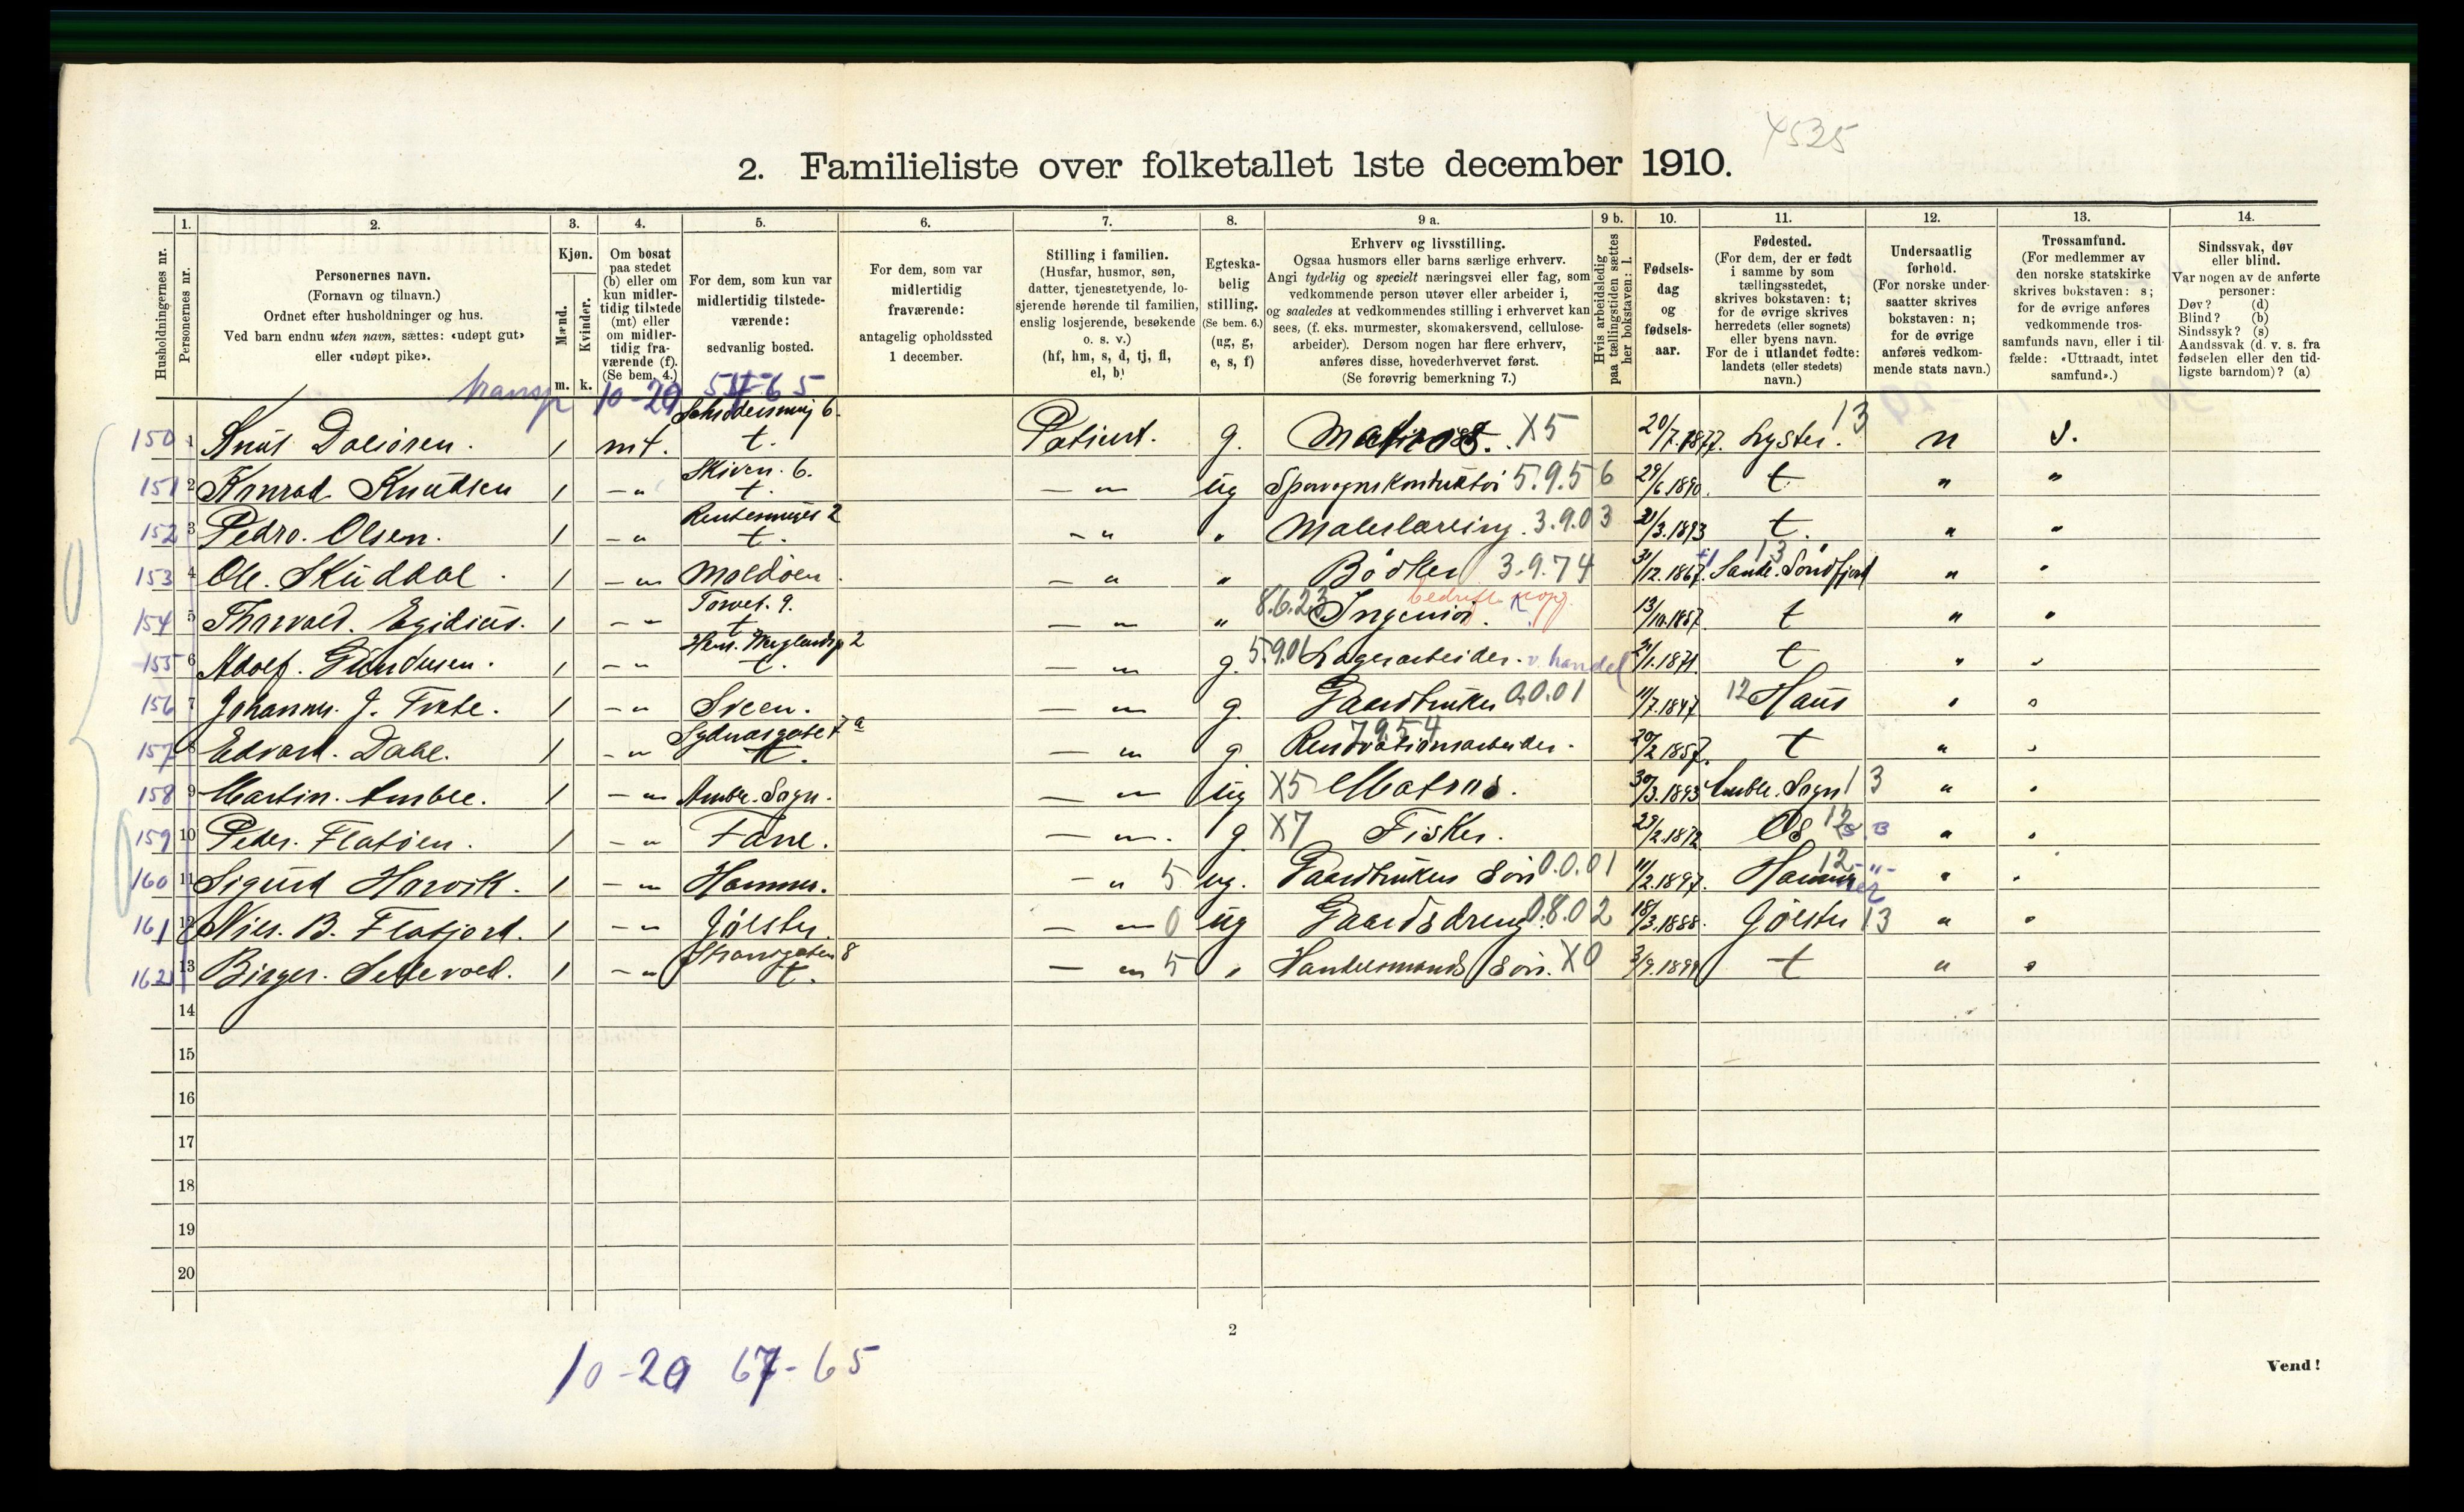 4535
2. Familieliste over folketallet 1ste december 1910.
Husholdningernes nr.
1. Personernes nr.
2. Personernes navn. (Fornavn og tilnavn.) Ordnet efter husholdninger og hus. Ved barn endnu uten navn, sættes: «udøpt gut» eller «udøpt pike».
3. Kjøn. Mænd. m. Kvinder. k.
4. Om bosat paa stedet (b) eller om kun midlertidig tilstede (mt) eller om midlertidig fraværende (f). (Se bem. 4.)
5. For dem, som kun var midlertidig tilstedeværende: sedvanlig bosted.
6. For dem, som var midlertidig fraværende: antagelig opholdssted 1 december.
7. Stilling i familien. (Husfar, husmor, søn, datter, tjenestetyende, losjerende hørende til familien, enslig losjerende, besøkende o. s. v.) (hf, hm, s, d, tj, fl, el, b)
8. Egteskabelig stilling. (Se bem. 6.) (ug, g, e, s, f)
9 a. Erhverv og livsstilling. Ogsaa husmors eller barns særlige erhverv. Angi tydelig og specielt næringsvei eller fag, som vedkommende person utøver eller arbeider i, og saaledes at vedkommendes stilling i erhvervet kan sees, (f. eks. murmester, skomakersvend, cellulosearbeider). Dersom nogen har flere erhverv, anføres disse, hovederhvervet først. (Se forøvrig bemerkning 7.)
9 b. Hvis arbeidsledig paa tællingstiden sættes her bokstaven: l.
10. Fødselsdag og fødselsaar.
11. Fødested. (For dem, der er født i samme by som tællingsstedet, skrives bokstaven: t; for de øvrige skrives herredets (eller sognets) eller byens navn. For de i utlandet fødte: landets (eller stedets) navn.)
12. Undersaatlig forhold. (For norske undersaatter skrives bokstaven: n; for de øvrige anføres vedkommende stats navn.)
13. Trossamfund. (For medlemmer av den norske statskirke skrives bokstaven: s; for de øvrige anføres vedkommende trossamfunds navn, eller i tilfælde: «Uttraadt, intet samfund».)
14. Sindssvak, døv eller blind. Var nogen av de anførte personer: Døv? (d) Blind? (b) Sindssyk? (s) Aandssvak (d. v. s. fra fødselen eller den tidligste barndom)? (a)
transp 10-20 65
150 1 Knut Dalsøren. 1 mt. 6. t. Patient. g. Matros. X5 20/7.1877. Lyster. 13 n s.
151 2 Konrad Knudsen 1 - " Skiven. 6. t. - " ug Sporvognskonduktør 5.9.5 6 29/6.1890. t " "
152 3 Pedro. Olsen. 1 - " 2 t. - " " Malerlærling. 3.9.0 3 /3.1893 t. " "
153 4 Ole. Skuddal. 1 - " Moldøen. - " " Bødker 3.9.74 31/12.1867. 13 Sande. Søndfjord " "
154 5 Thorvald. Egidius. 1 - " Torvet. 9. t - " " 8.6.23 Ingeniør. K 13/10.1857. t " "
155 6 Adolf. Gundersen. 1 - " Henr. Wergelandsg 2 t. - " g. 5.9.01 Lagerarbeider. v. handel /1.1871. t " "
156 7 Johannes. J. Tvete. 1 - " Sveen. - " g. Gaardbruker 0.0.01 11/7.1847 12 Haus " "
157 8 Edvard. Dahl. 1 - " Sydnæsgate 7a t. - " g. 7.9.54 Renovationsarbeider. 20/2.1857. t " "
158 9 Martin. Amble. 1 - " Amble. Sogn. - " ug X5 Matros. 30/3.1893 Amble. Sogn 13 " "
159 10 Peder. Flatøen. 1 - " Fane. - " g. X7 Fisker. 23/2.1872 Os 12 " "
160 11 Sigurd Horvik. 1 - " Hammer. - " 5 ug. Gaardbrukers Søn 0.0.01 11/2.1897. Hammer 12 " "
161 12 Nils. B. Flatjord. 1 - " Jølster. - " 0 ug Gaardsdreng 0.8.02 18/3.1888. Jølster 13 " "
162 13 Birger. Settevold. 1 - " Strandgaten 8 t. - " 5 " Handelsmands Søn. X0 3/9.1899 t " "
14
15
16
17
18
19
20
2
10-20 67-65
Vend!